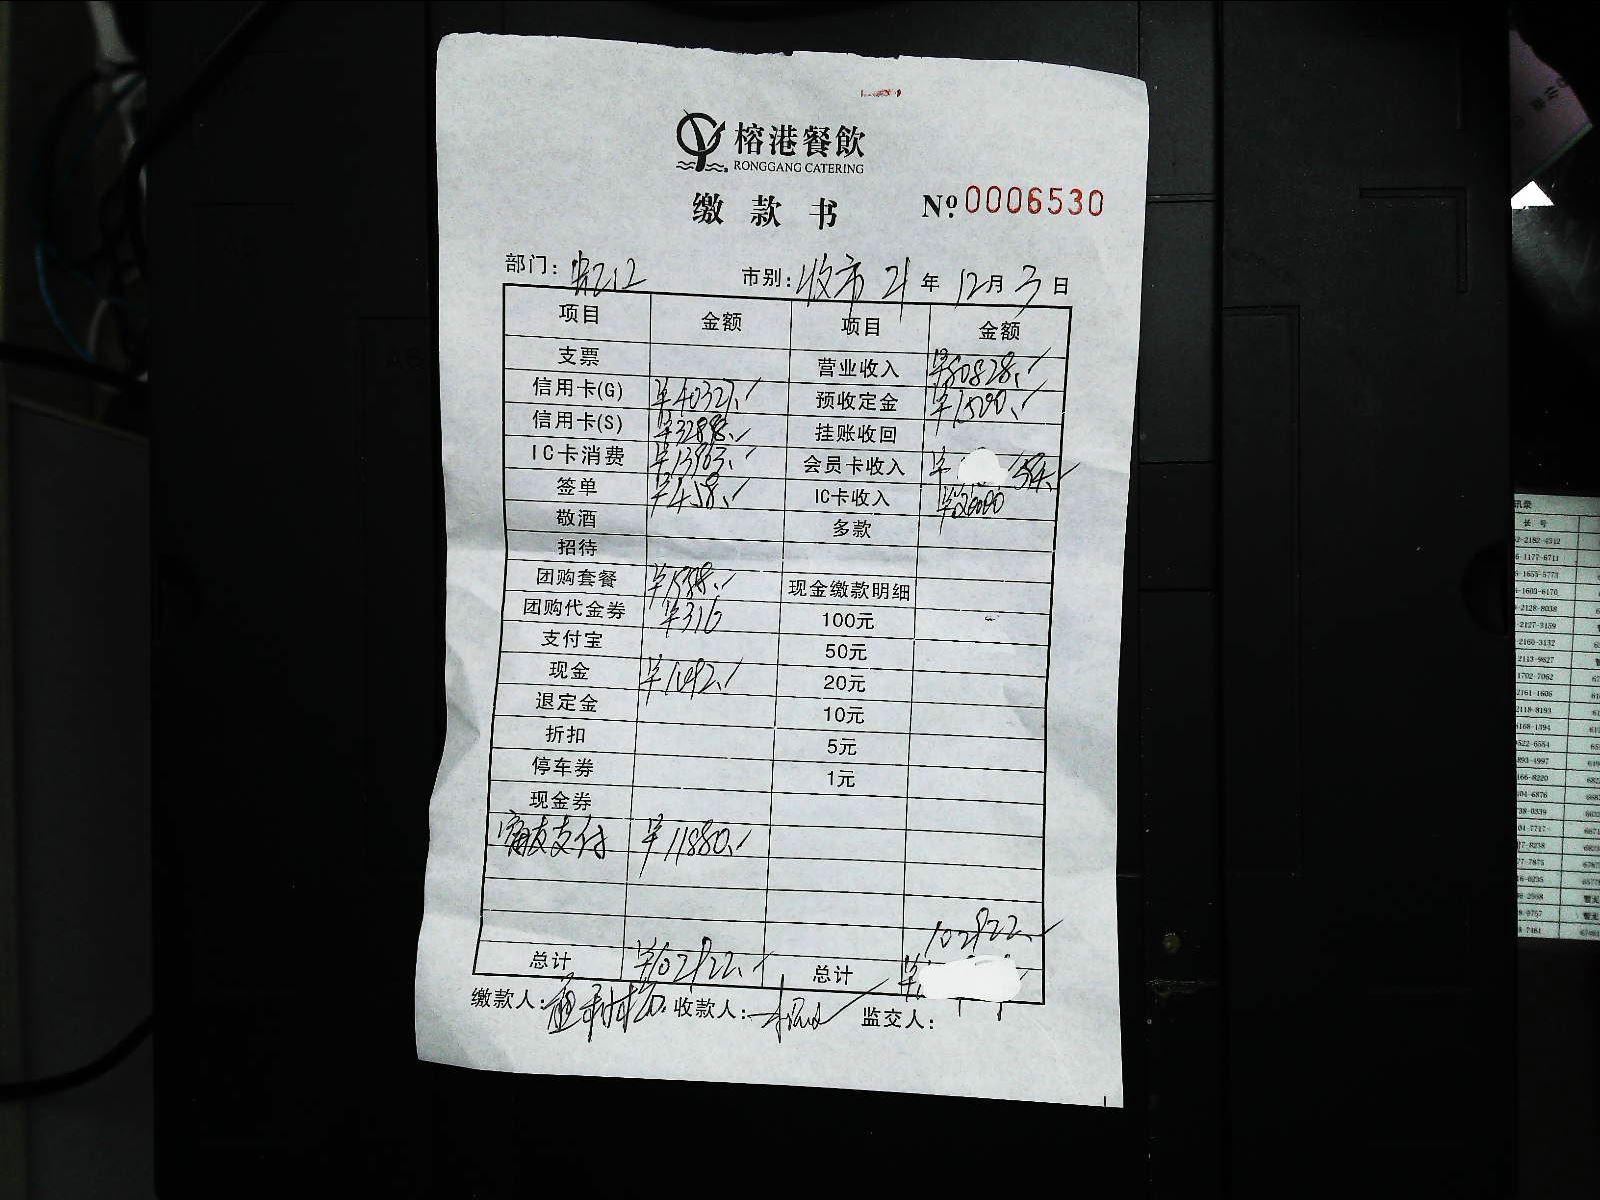 榕港餐飲
RONGGANG CATERING
缴款书 № 0006530
部门： 市别：收市 21年 12月 3日
项目 金额 项目 金额
支票 营业收入 ¥80828.
信用卡(G) ¥40327. 预收定金 ¥1500.
信用卡(S) ¥32898. 挂账收回
IC卡消费 ¥13963. 会员卡收入 ¥ 594.
签单 ¥458. IC卡收入 ¥20000
敬酒 多款
招待
团购套餐 ¥1588. 现金缴款明细
团购代金券 ¥316 100元
支付宝 50元
现金 ¥1492. 20元
退定金 10元
折扣 5元
停车券 1元
现金券
支付 ¥11880.
102922.
总计 ¥102922. 总计 ¥
缴款人： 收款人： 监交人：